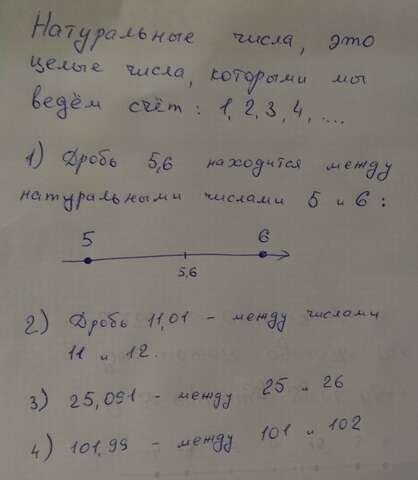 Натуральные числа, это
целые числа, которыми мы
ведём счёт: 1, 2, 3, 4, ....
1) Дробь 5,6 находится между
натуральными числами 5 и 6:
5 6
5,6
2) Дробь 11,01 - между числами
11 и 12.
3) 25,091 - между 25 и 26
4) 101,99 - между 101 и 102